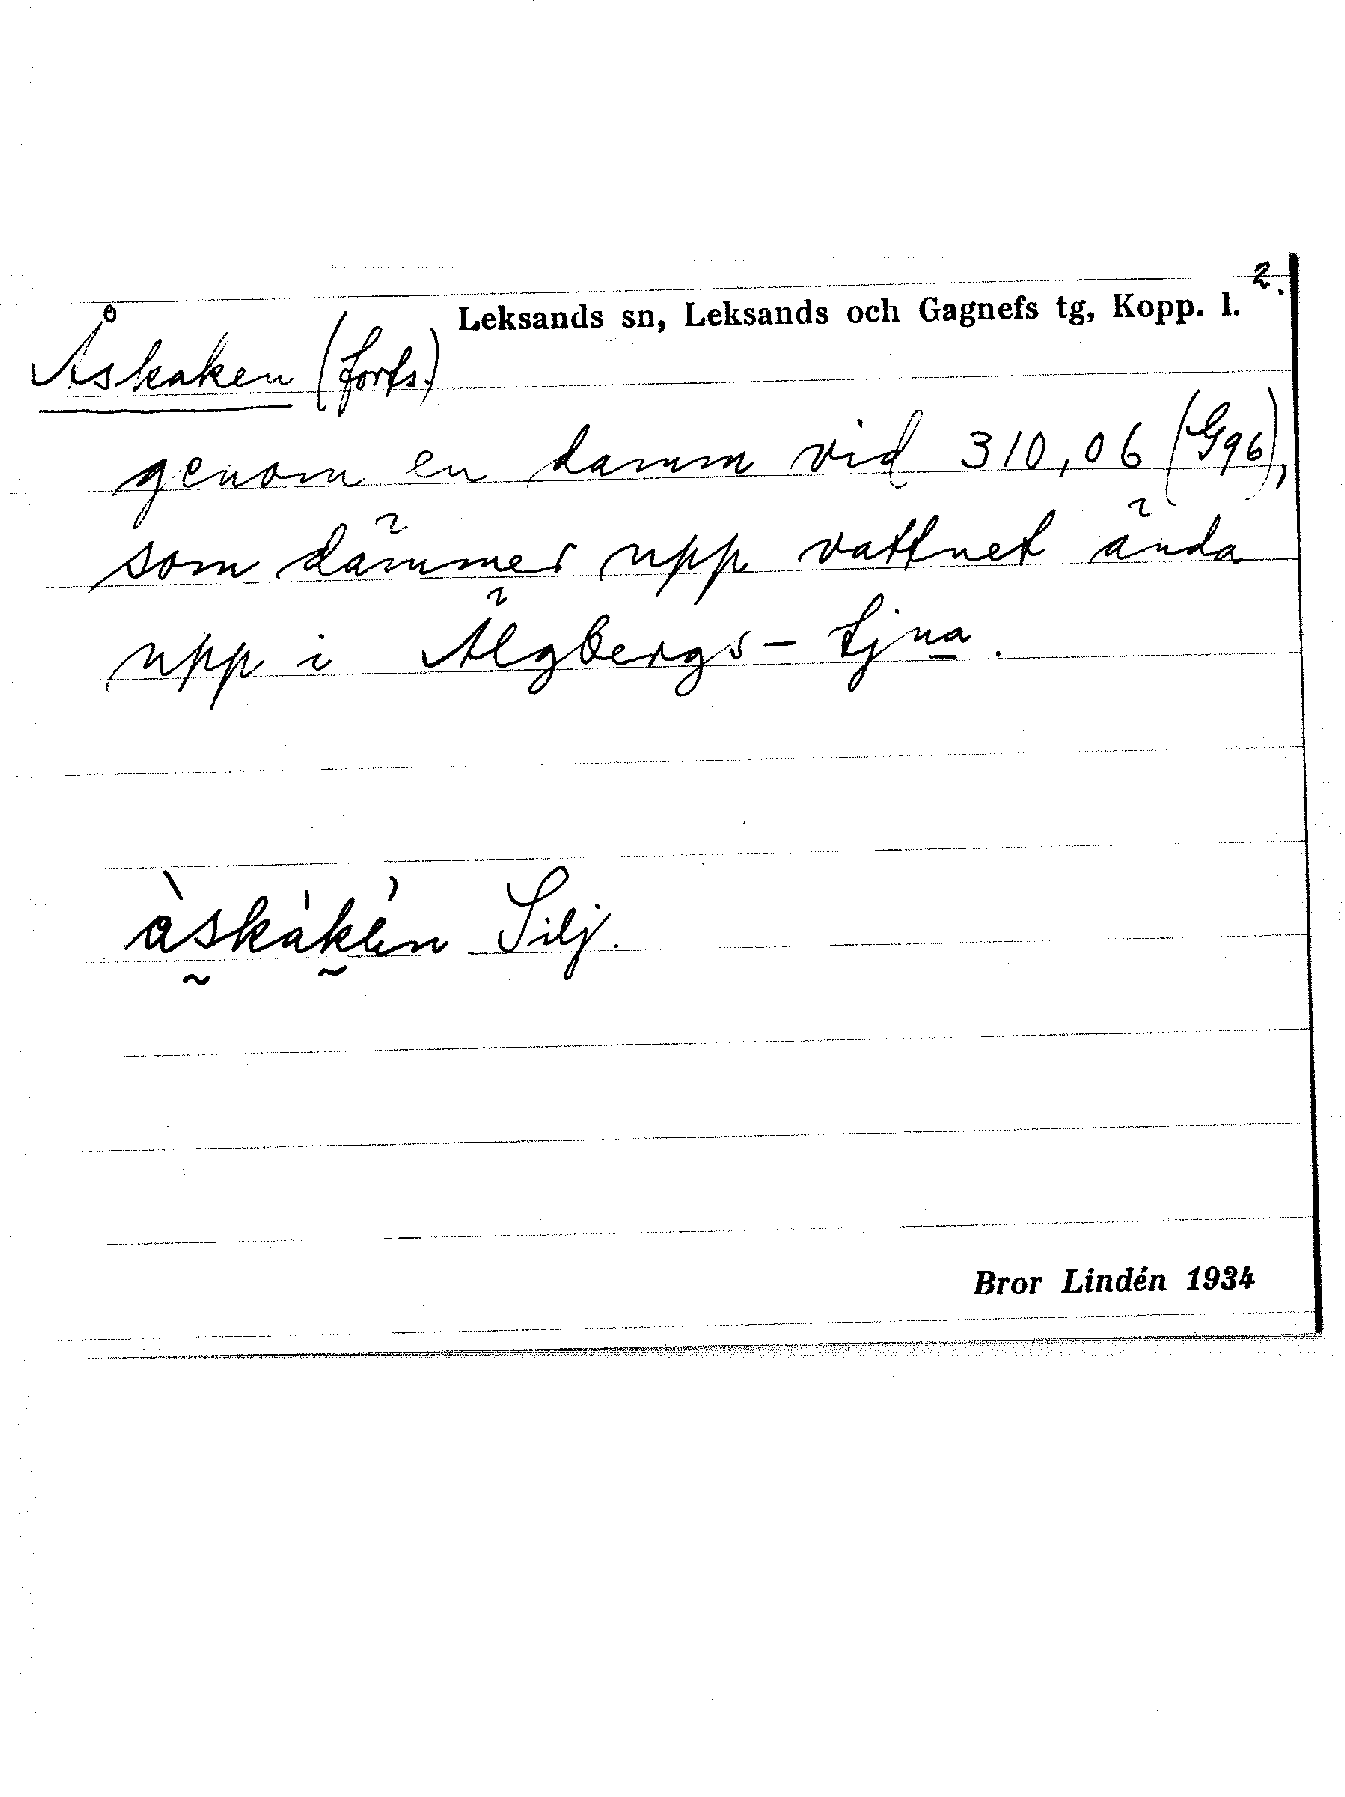 2.
Leksands sn, Leksands och Gagnefs tg, Kopp. l.
Åskaken (forts.)
genom en damm vid 310,06 (G96),
som dämmer upp vattnet ända
upp i Älgbergs-tjna.
Silj.
Bror Lindén 1934